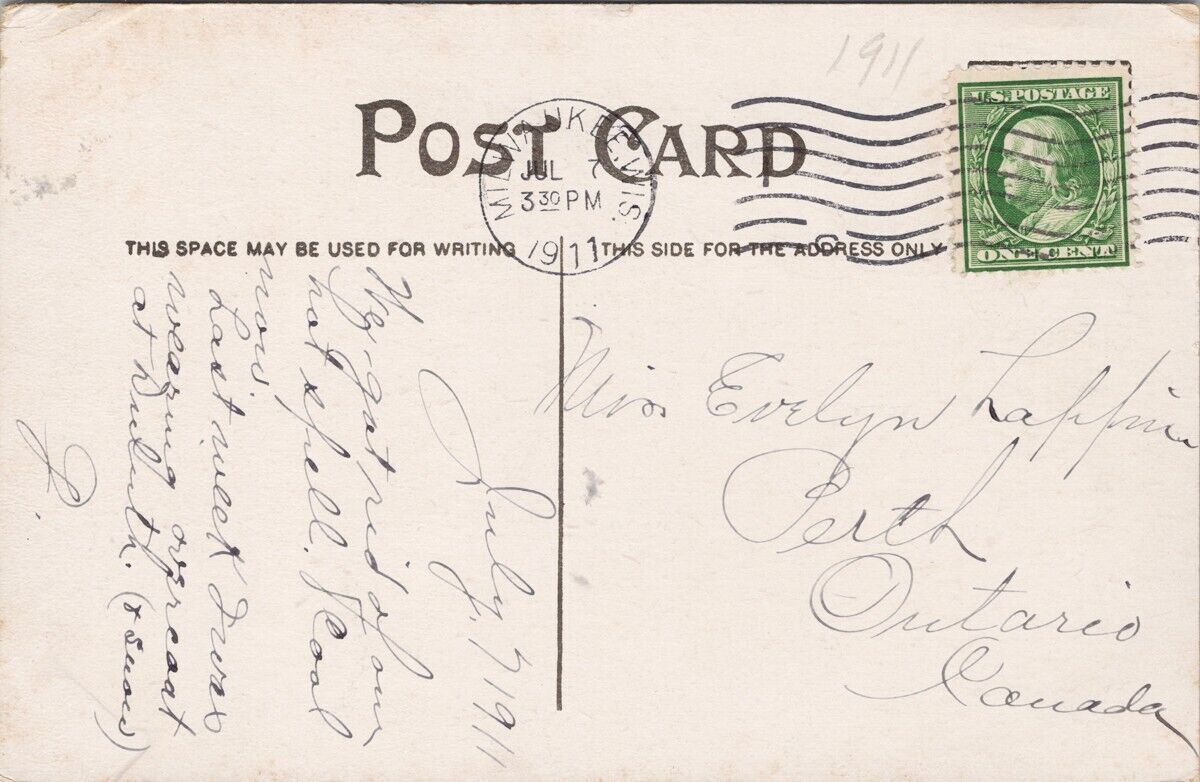 1911
POST CARD
MILWAUKEE, WIS.
JUL 7
3 30 PM
1911
U.S. POSTAGE
ONE CENT
THIS SPACE MAY BE USED FOR WRITING
THIS SIDE FOR THE ADDRESS ONLY
July, 7 1911
We got rid of our
hot spell. & cool
now.
Last week I was
wearing overcoat
at Duluth. (& snow)
Miss Evelyn Lappin
Perth
Ontario
Canada